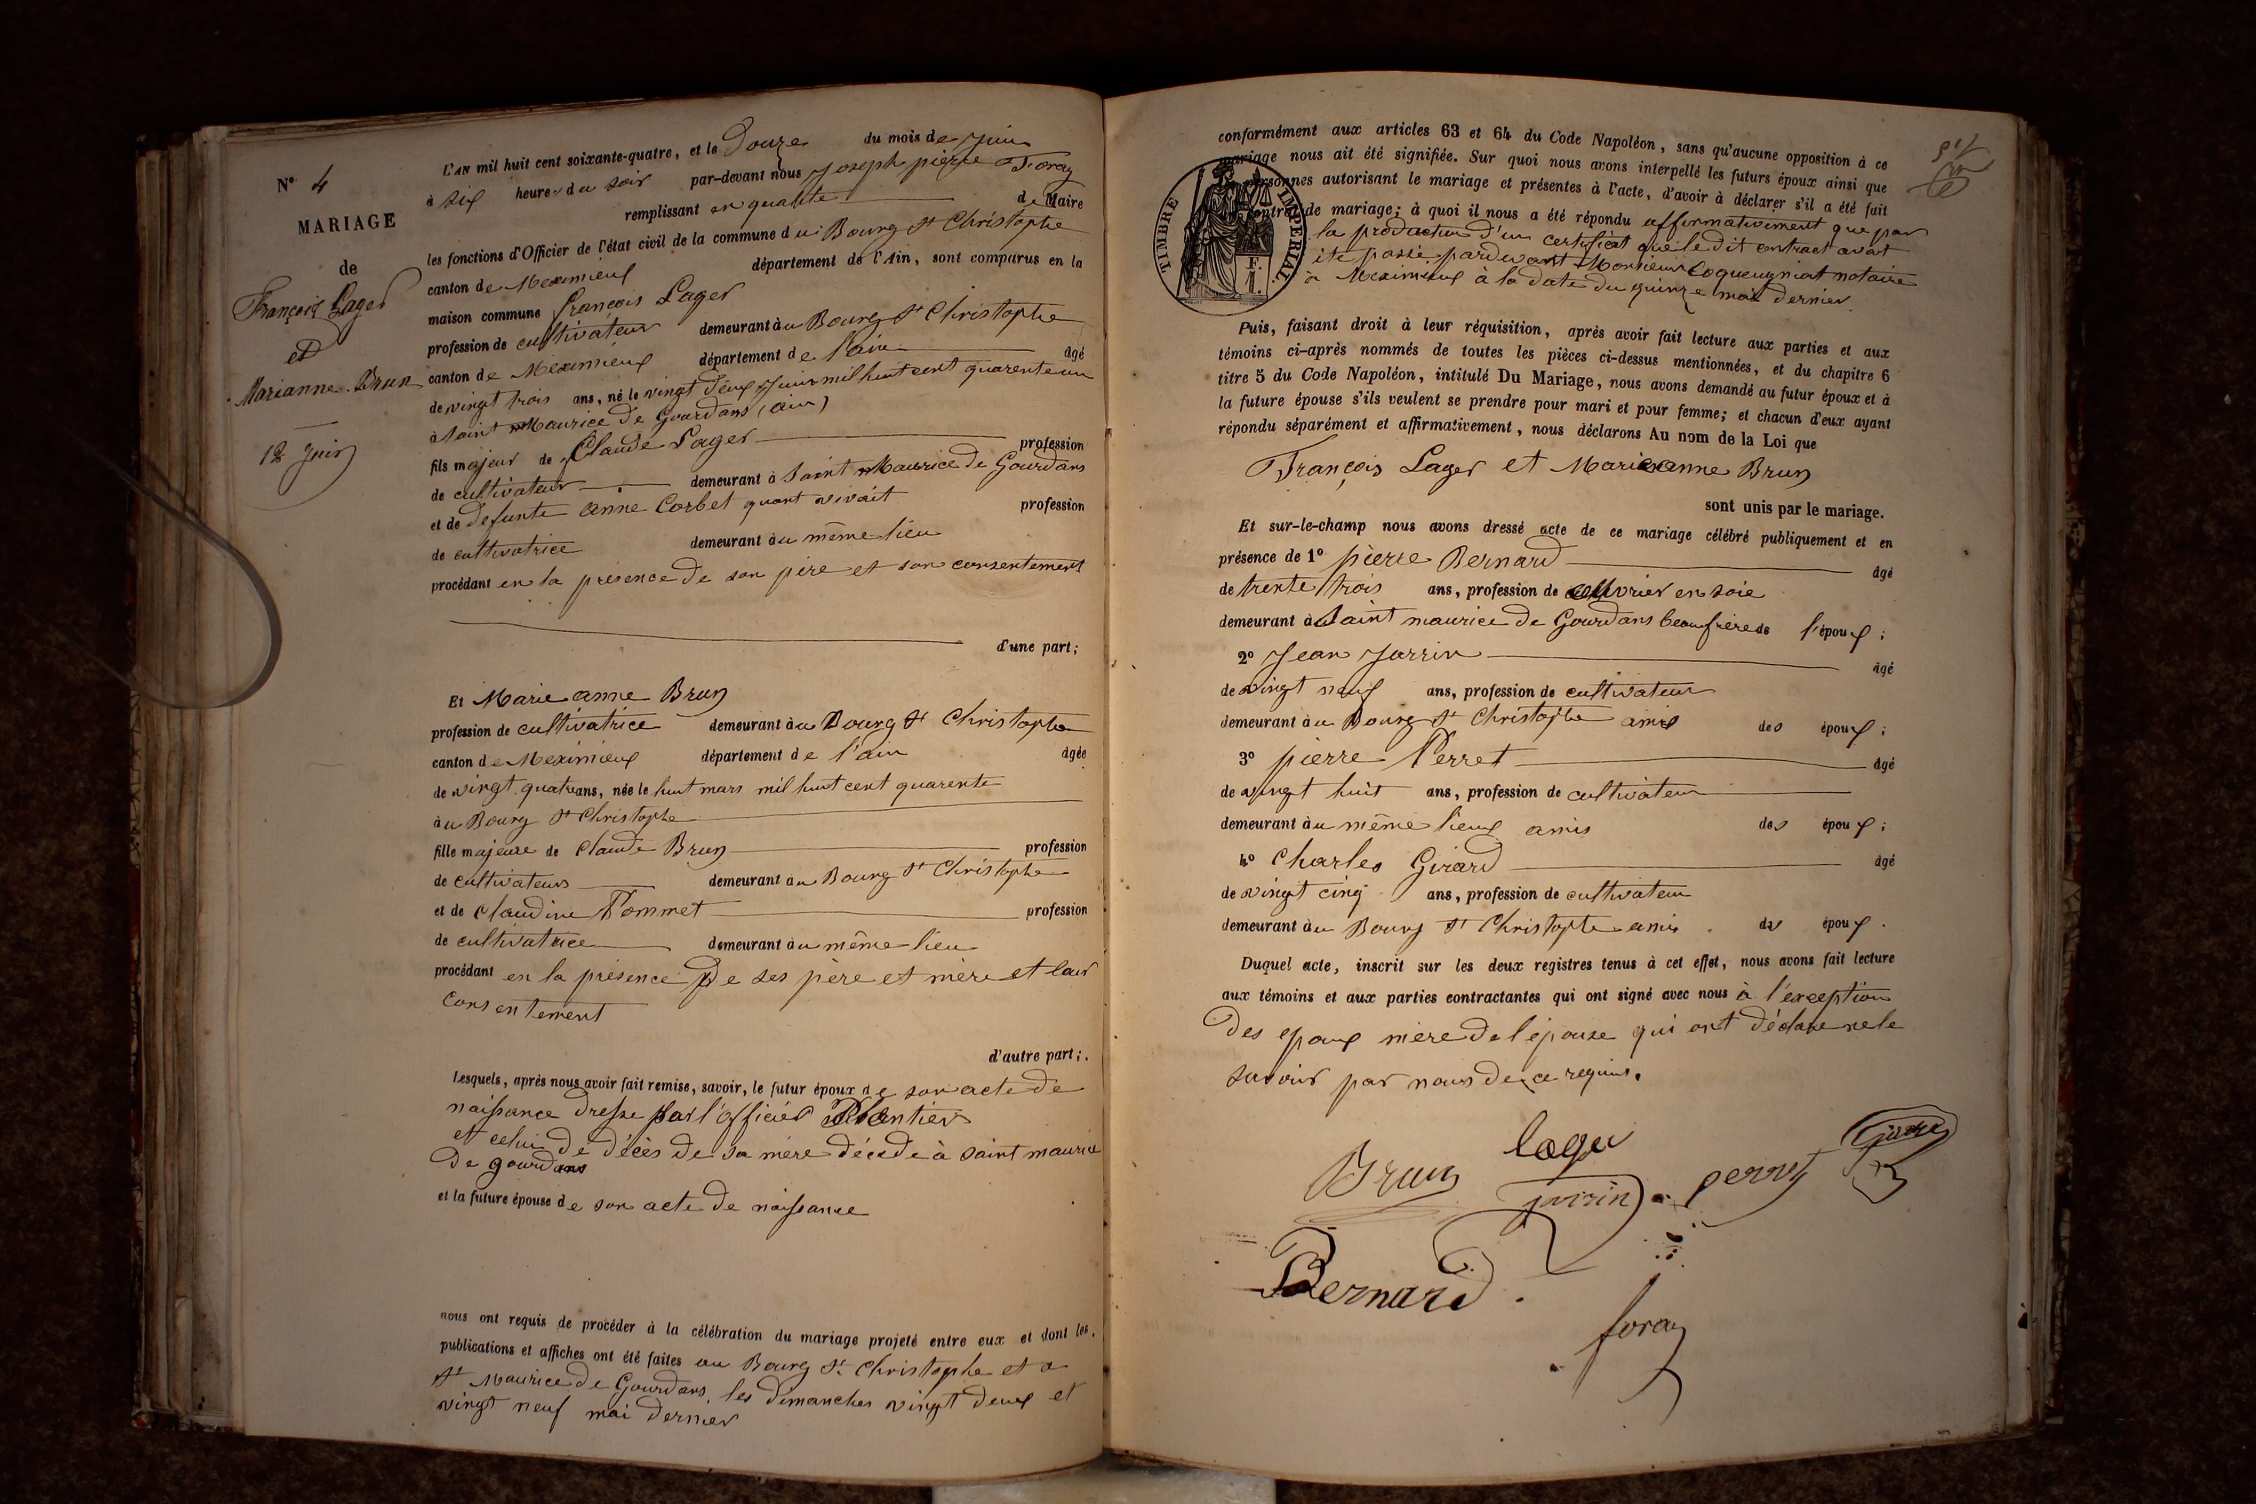 N° 4
MARIAGE
de
François Lager
et
Marianne Brun
12 Juin
L'AN mil huit cent soixante-quatre, et le Douze du mois de Juin
à six heures du soir par-devant nous Joseph pierre Foray
remplissant en qualité de Maire
les fonctions d'Officier de l'état civil de la commune du Bourg St Christophe
canton de Meximieux département de l'Ain, sont comparus en la
maison commune françois Lager
profession de cultivateur demeurant àu Bourg St Christophe
canton de Meximieux département de l'ain âgé
de vingt trois ans, né le vingt deux Juin mil huit cent quarente un
à Saint Maurice de Gourdans (ain)
fils majeur de Claude Lager profession
de cultivateur demeurant à Saint Maurice de Gourdans
et de defunte anne Corbet quant vivait profession
de cultivatrice demeurant àu même lieu
procédant en la présence de son père et son consentement
d'une part;
Et Marie anne Brun
profession de cultivatrice demeurant àu Bourg St Christophe
canton de Meximieux département de l'ain âgée
de vingt quatre ans, née le huit mars mil huit cent quarente
àu Bourg St Christophe
fille majeure de Claude Brun profession
de cultivateur demeurant au Bourg St Christophe
et de Claudine Pommet profession
de cultivatrice demeurant àu même lieu
procédant en la présence De ses père et mère et leur
consentement
d'autre part;.
Lesquels, après nous avoir fait remise, savoir, le futur époux de son acte de
naissance dressé par l'officier
et celui de décès de sa mère décédé à saint maurice
De gourdans
et la future épouse de son acte de naissance
nous ont requis de procéder à la célébration du mariage projeté entre eux et dont les
publications et affiches ont été faites au Bourg St Christophe et a
St Maurice de Gourdans les dimanches vingt deux et
vingt neuf mai dernier
conformément aux articles 63 et 64 du Code Napoléon, sans qu'aucune opposition à ce
mariage nous ait été signifiée. Sur quoi nous avons interpellé les futurs époux ainsi que
personnes autorisant le mariage et présentes à l'acte, d'avoir à déclarer s'il a été fait
contrat de mariage; à quoi il nous a été répondu affirmativement que par
la production d'un certificat que le dit contract avait
été passé pardevant Monsieur Coqueugniot notaire
à Meximieux à la date du quinze mai dernier
TIMBRE IMPERIAL
F.
1.
Puis, faisant droit à leur réquisition, après avoir fait lecture aux parties et aux
témoins ci-après nommés de toutes les pièces ci-dessus mentionnées, et du chapitre 6
titre 5 du Code Napoléon, intitulé Du Mariage, nous avons demandé au futur époux et à
la future épouse s'ils veulent se prendre pour mari et pour femme; et chacun d'eux ayant
répondu séparément et affirmativement, nous déclarons Au nom de la Loi que
François Lager et Marie anne Brun
sont unis par le mariage.
Et sur-le-champ nous avons dressé acte de ce mariage célébré publiquement et en
présence de 1° pierre Bernard âgé
de trente trois ans, profession de ouvrier en soie
demeurant à Saint maurice de Gourdans beaufrère de l'époux;
2° Jean Jarrin âgé
de vingt neuf ans, profession de cultivateur
demeurant àu Bourg St Christophe amis des époux;
3° pierre Perret âgé
de vingt huit ans, profession de cultivateur
demeurant àu même lieux amis des époux;
4° Charles Girard âgé
de vingt cinq ans, profession de cultivateur
demeurant àu Bourg St Christophe amis des époux.
Duquel acte, inscrit sur les deux registres tenus à cet effet, nous avons fait lecture
aux témoins et aux parties contractantes qui ont signé avec nous à l'exception
Des epoux mère de l'épouse qui ont déclaré ne le
savoir par nous de ce requis.
Brun
lager
jarrin
perret
Girard
Bernard
foray